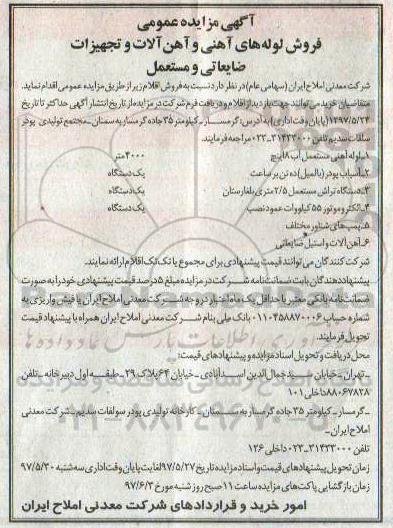 آگهی مزایده عمومی
فروش لوله‌های آهنی و آهن آلات و تجهیزات
ضایعاتی و مستعمل
شرکت معدنی املاح ایران (سهامی عام) در نظر دارد نسبت به فروش اقلام زیر از طریق مزایده عمومی اقدام نماید.
متقاضیان خرید می توانند جهت بازدید از اقلام و دریافت فرم شرکت در مزایده از تاریخ انتشار آگهی حداکثر تا تاریخ
۱۳۹۷/۵/۲۴ (پایان وقت اداری) به آدرس: گرمسار - کیلومتر ۳۵ جاده گرمسار به سمنان - مجتمع تولیدی پودر
سلفات سدیم تلفن ۳۱۴۳۳۰۰۰-۰۲۳ مراجعه فرمایند.
۱ـ لوله آهنی مستعمل آب ۸ اینچ ۴۰۰۰ متر
۲ـ آسیاب پودر (بالمیل) ده تن بر ساعت یک دستگاه
۳ـ دستگاه تراش مستعمل ۲/۵ متری بلغارستان یک دستگاه
۴ـ الکتروموتور ۵۵ کیلووات عمود نصب یک دستگاه
۵ـ پمپ‌های شناور مختلف
۶ـ آهن آلات و استیل ضایعاتی
شرکت کنندگان می توانند قیمت پیشنهادی برای مجموع یا تک تک اقلام ارائه نمایند.
پیشنهاددهندگان بابت ضمانت نامه شرکت در مزایده مبلغ ۵ درصد قیمت پیشنهادی خود را به صورت
ضمانت نامه بانکی معتبر با حداقل یک ماه اعتبار در وجه شرکت معدنی املاح ایران یا فیش واریزی به
شماره حساب ۰۱۱۰۴۵۸۸۷۰۰۰۶ بانک ملی بنام شرکت معدنی املاح ایران همراه با پیشنهاد قیمت
تحویل فرمایند.
محل دریافت و تحویل اسناد مزایده و پیشنهادهای قیمت:
ـ تهران - خیابان سیدجمال الدین اسدآبادی - خیابان ۶۴ پلاک ۲۹ - طبقه اول دبیرخانه - تلفن
۸۸۰۶۷۸۳۸ داخلی ۱۰۱
ـ گرمسار - کیلومتر ۳۵ جاده گرمسار به سمنان - کارخانه تولیدی پودر سولفات سدیم - شرکت معدنی
املاح ایران -
تلفن ۳۱۴۳۳۰۰۰-۰۲۳ داخلی ۱۲۶
زمان تحویل پیشنهادهای قیمت و اسناد مزایده تاریخ ۹۷/۵/۲۷ لغایت پایان وقت اداری سه شنبه ۹۷/۵/۳۰
زمان بازگشایی پاکت‌های مزایده ساعت ۱۱ صبح روز شنبه مورخ ۹۷/۶/۳
امور خرید و قراردادهای شرکت معدنی املاح ایران